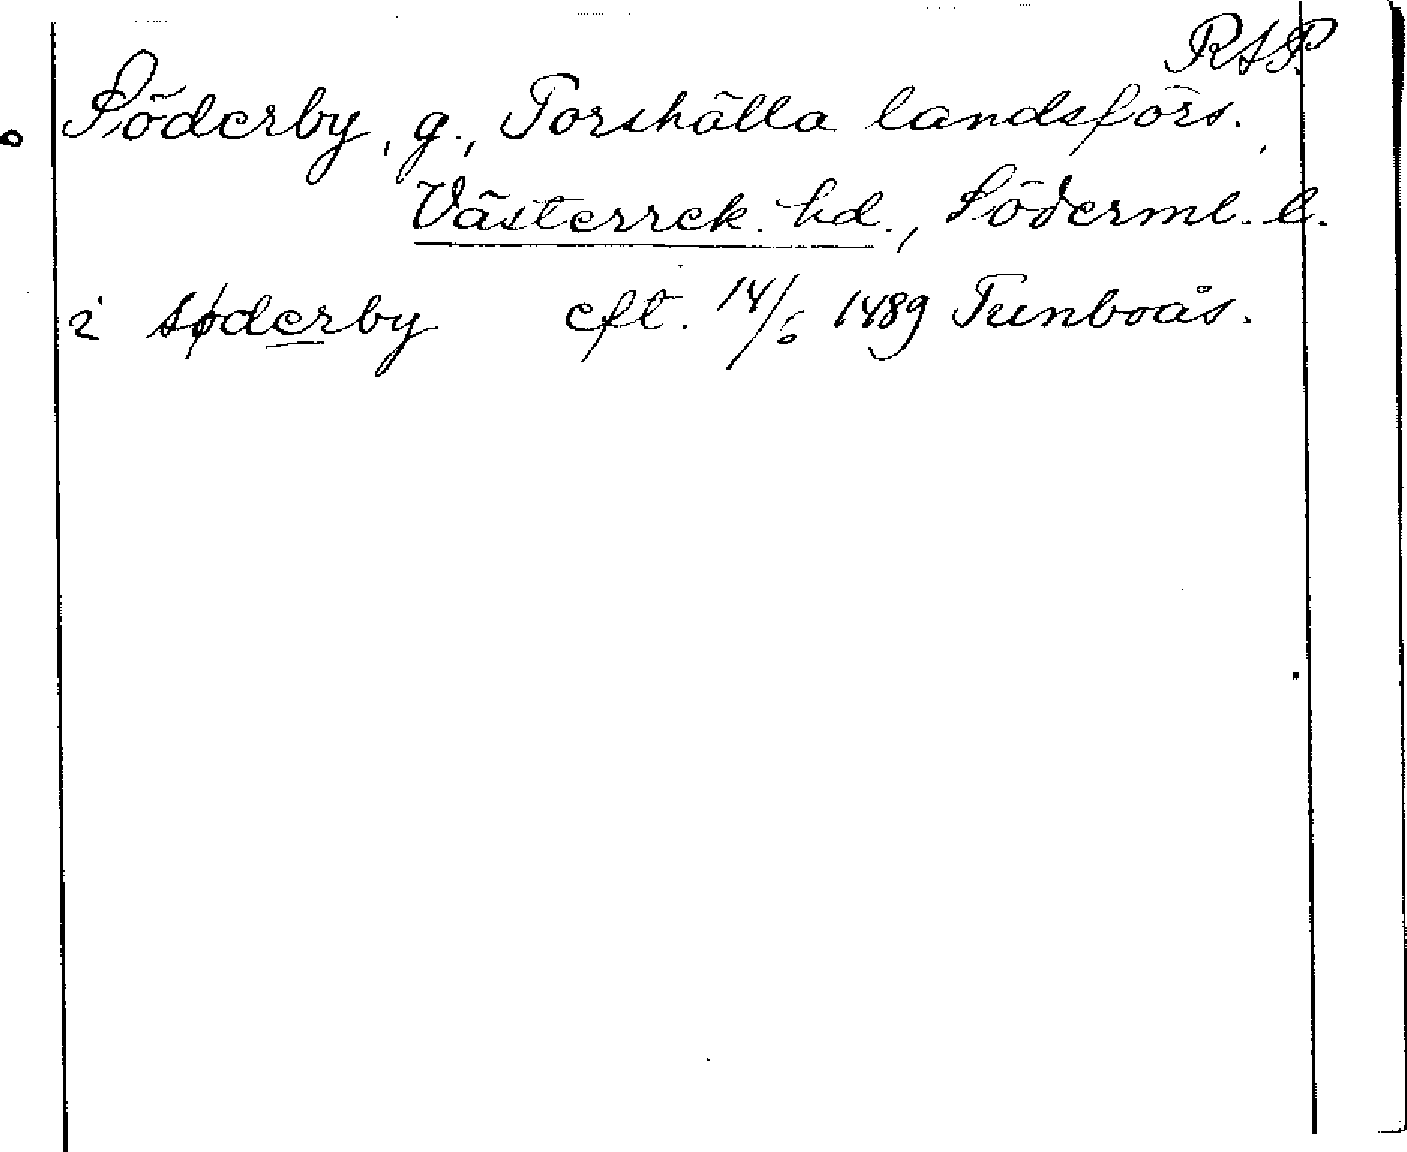 RAP.
Söderby, g., Torshälla landsförs.,
Västerrek. hd., Söderml. l.
i søderby eft. 14/6 1489 Tunboås.